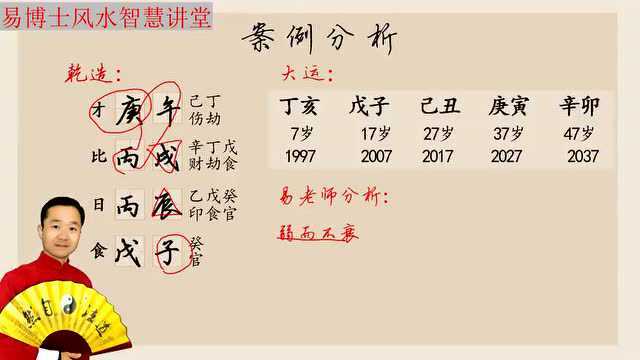 易博士风水智慧讲堂
案例分析
乾造：
才 庚 午 己丁
伤劫
比 丙 戌 辛丁戊
财劫食
日 丙 辰 乙戊癸
印食官
食 戊 子 癸
官
大运：
丁亥 戊子 己丑 庚寅 辛卯
7岁 17岁 27岁 37岁 47岁
1997 2007 2017 2027 2037
易老师分析：
弱而不衰